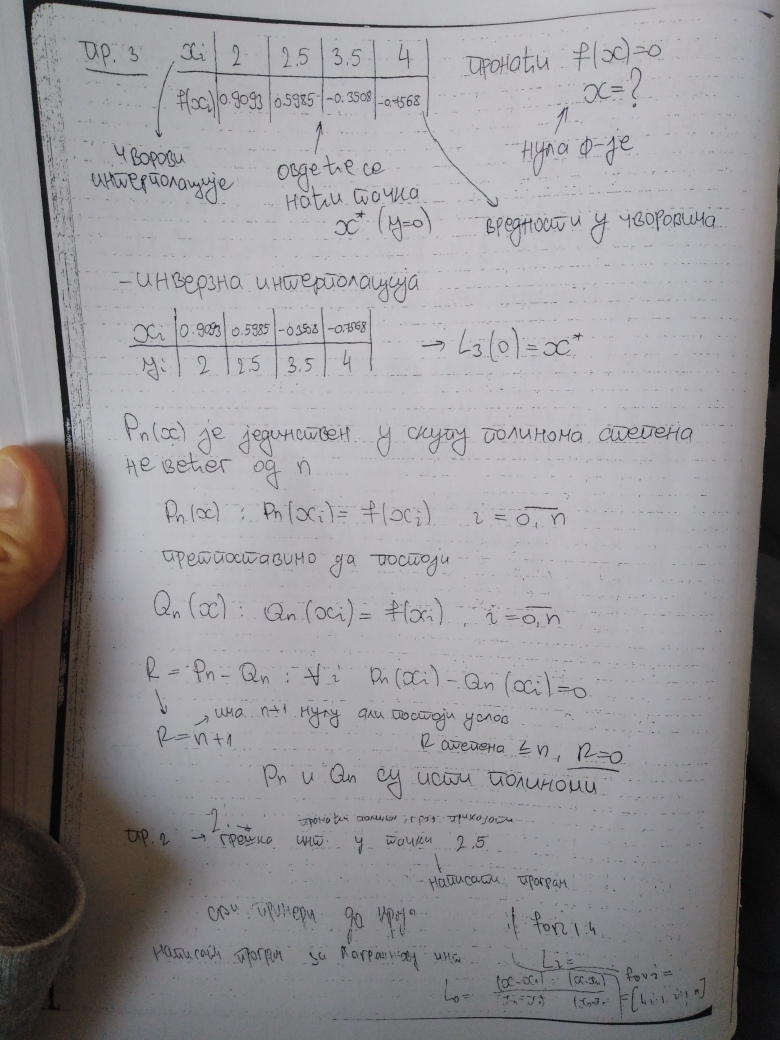 пр. 3
xi | 2 | 2.5 | 3.5 | 4
f(xi) | 0.9093 | 0.5985 | -0.3508 | -0.7568
пронаћи f(x)=0
x=?
нула ф-је
чворови
интерполације
овде ће се
наћи тачка
x* (y=0)
вредности у чворовима
- инверзна интерполација
xi | 0.9093 | 0.5985 | -0.3508 | -0.7568
yi | 2 | 2.5 | 3.5 | 4
→ L3(0) = x*
Pn(x) је јединствен у скупу полинома степена
не већег од n
Pn(x) : Pn(xi) = f(xi) i = 0,n
претпоставимо да постоји
Qn(x) : Qn(xi) = f(xi), i = 0,n
R = Pn - Qn : ∀i Pn(xi) - Qn(xi) = 0
има n+1 нулу али постоји услов
R = n+1
R степена ≤ n, R=0
Pn и Qn су исти полиноми
2.
пр. 2 → грешка инт. у тачки 2.5
написати програм
сви примери до краја
for 1:4
написати програм за инт
Li =
L0 =
for i =